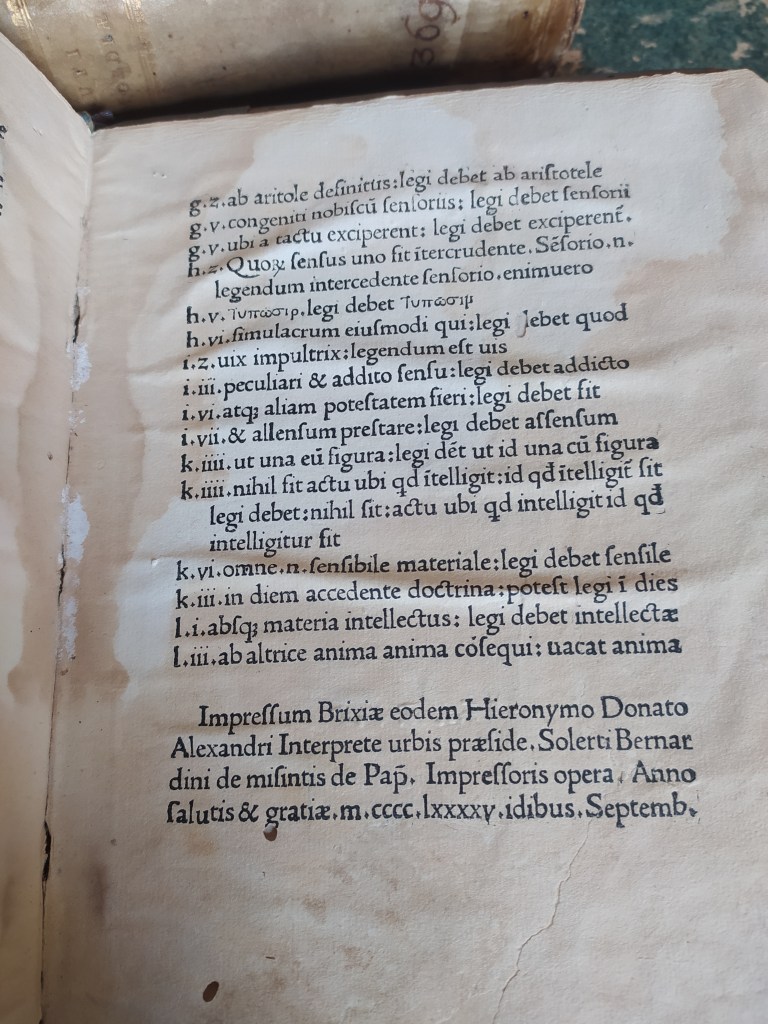 369
g.z.ab aritole definitus:legi debet ab ariſtotele
g.v.congeniti nobiſcū ſenſorius: legi debet ſenſorii
g.v.ubi a tactu exciperent: legi debet exciperent̄.
h.z.Quoꝝ ſenſus uno fit ītercrudente. Sēſorio.n.
legendum intercedente ſenſorio.enimuero
h.v. τυπωσιρ.legi debet τυπωσιμ
h.vi.ſimulacrum eiuſmodi qui:legi debet quod
i.z.uix impultrix:legendum eſt uis
i.iii.peculiari & addito ſenſu:legi debet addicto
i.vi.atqꝫ aliam poteſtatem fieri:legi debet fit
i.vii.& allenſum preſtare:legi debet aſſenſum
k.iiii.ut una eū figura:legi dēt ut id una cū figura
k.iiii.nihil fit actu ubi qđ ītelligit:id qđ ītelligit̄ fit
legi debet:nihil fit:actu ubi qđ intelligit id qđ
intelligitur fit
k.vi.omne.n.ſenſibile materiale:legi debet ſenſile
k.iii.in diem accedente doctrina:poteſt legi ī dies
l.i.abſqꝫ materia intellectus: legi debet intellectæ
l.iii.ab altrice anima anima cōſequi: uacat anima
Impreſſum Brixiæ eodem Hieronymo Donato
Alexandri Interprete urbis præſide. Solerti Bernar
dini de miſintis de Pap̄. Impreſſoris opera. Anno
ſalutis & gratiæ.m.cccc.lxxxxv.idibus.Septemb.